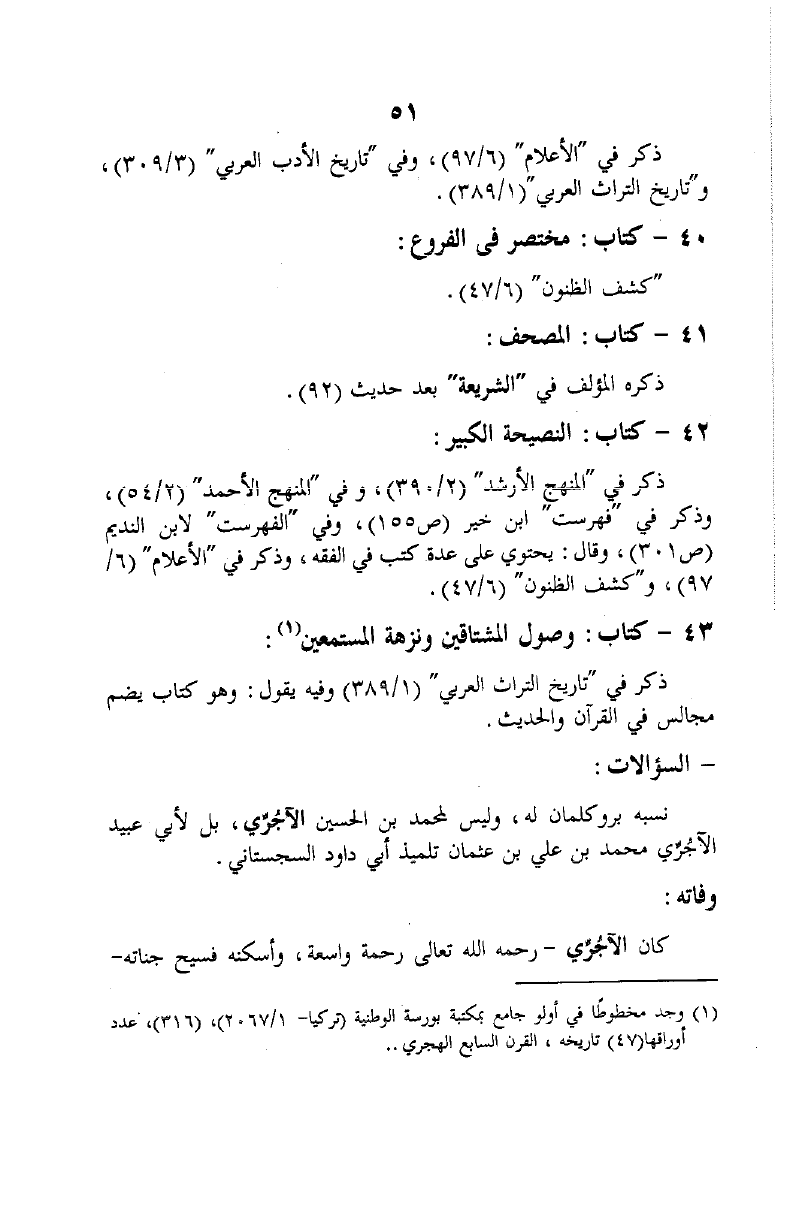 ٥١
ذكر في "الأعلام" (٩٧/٦)، وفي "تاريخ الأدب العربي" (٣٠٩/٣)،
و"تاريخ التراث العربي"(٣٨٩/١).
٤٠ - كتاب: مختصر فى الفروع:
"كشف الظنون" (٤٧/٦).
٤١ - كتاب: المصحف:
ذكره المؤلف في "الشريعة" بعد حديث (٩٢).
٤٢ - كتاب: النصيحة الكبير:
ذكر في "المنهج الأرشد" (٣٩٠/٢)، و في "المنهج الأحمد" (٥٤/٢)،
وذكر في "فهرست" ابن خير (ص١٥٥)، وفي "الفهرست" لابن النديم
(ص٣٠١)، وقال: يحتوي على عدة كتب في الفقه، وذكر في "الأعلام" (٦/
٩٧)، و"كشف الظنون" (٤٧/٦).
٤٣ - كتاب: وصول المشتاقين ونزهة المستمعين(١):
ذكر في "تاريخ التراث العربي" (٣٨٩/١) وفيه يقول: وهو كتاب يضم
مجالس في القرآن والحديث.
- السؤالات:
نسبه بروكلمان له، وليس لمحمد بن الحسين الآجُرِّي، بل لأبي عبيد
الآجُرِّي محمد بن علي بن عثمان تلميذ أبي داود السجستاني.
وفاته:
كان الآجُرِّي - رحمه الله تعالى رحمة واسعة، وأسكنه فسيح جناته-
(١) وجد مخطوطًا في أولو جامع بمكتبة بورسة الوطنية (تركيا- ٢٠٦٧/١)، (٣١٦)، عدد
أوراقها(٤٧) تاريخه ، القرن السابع الهجري..